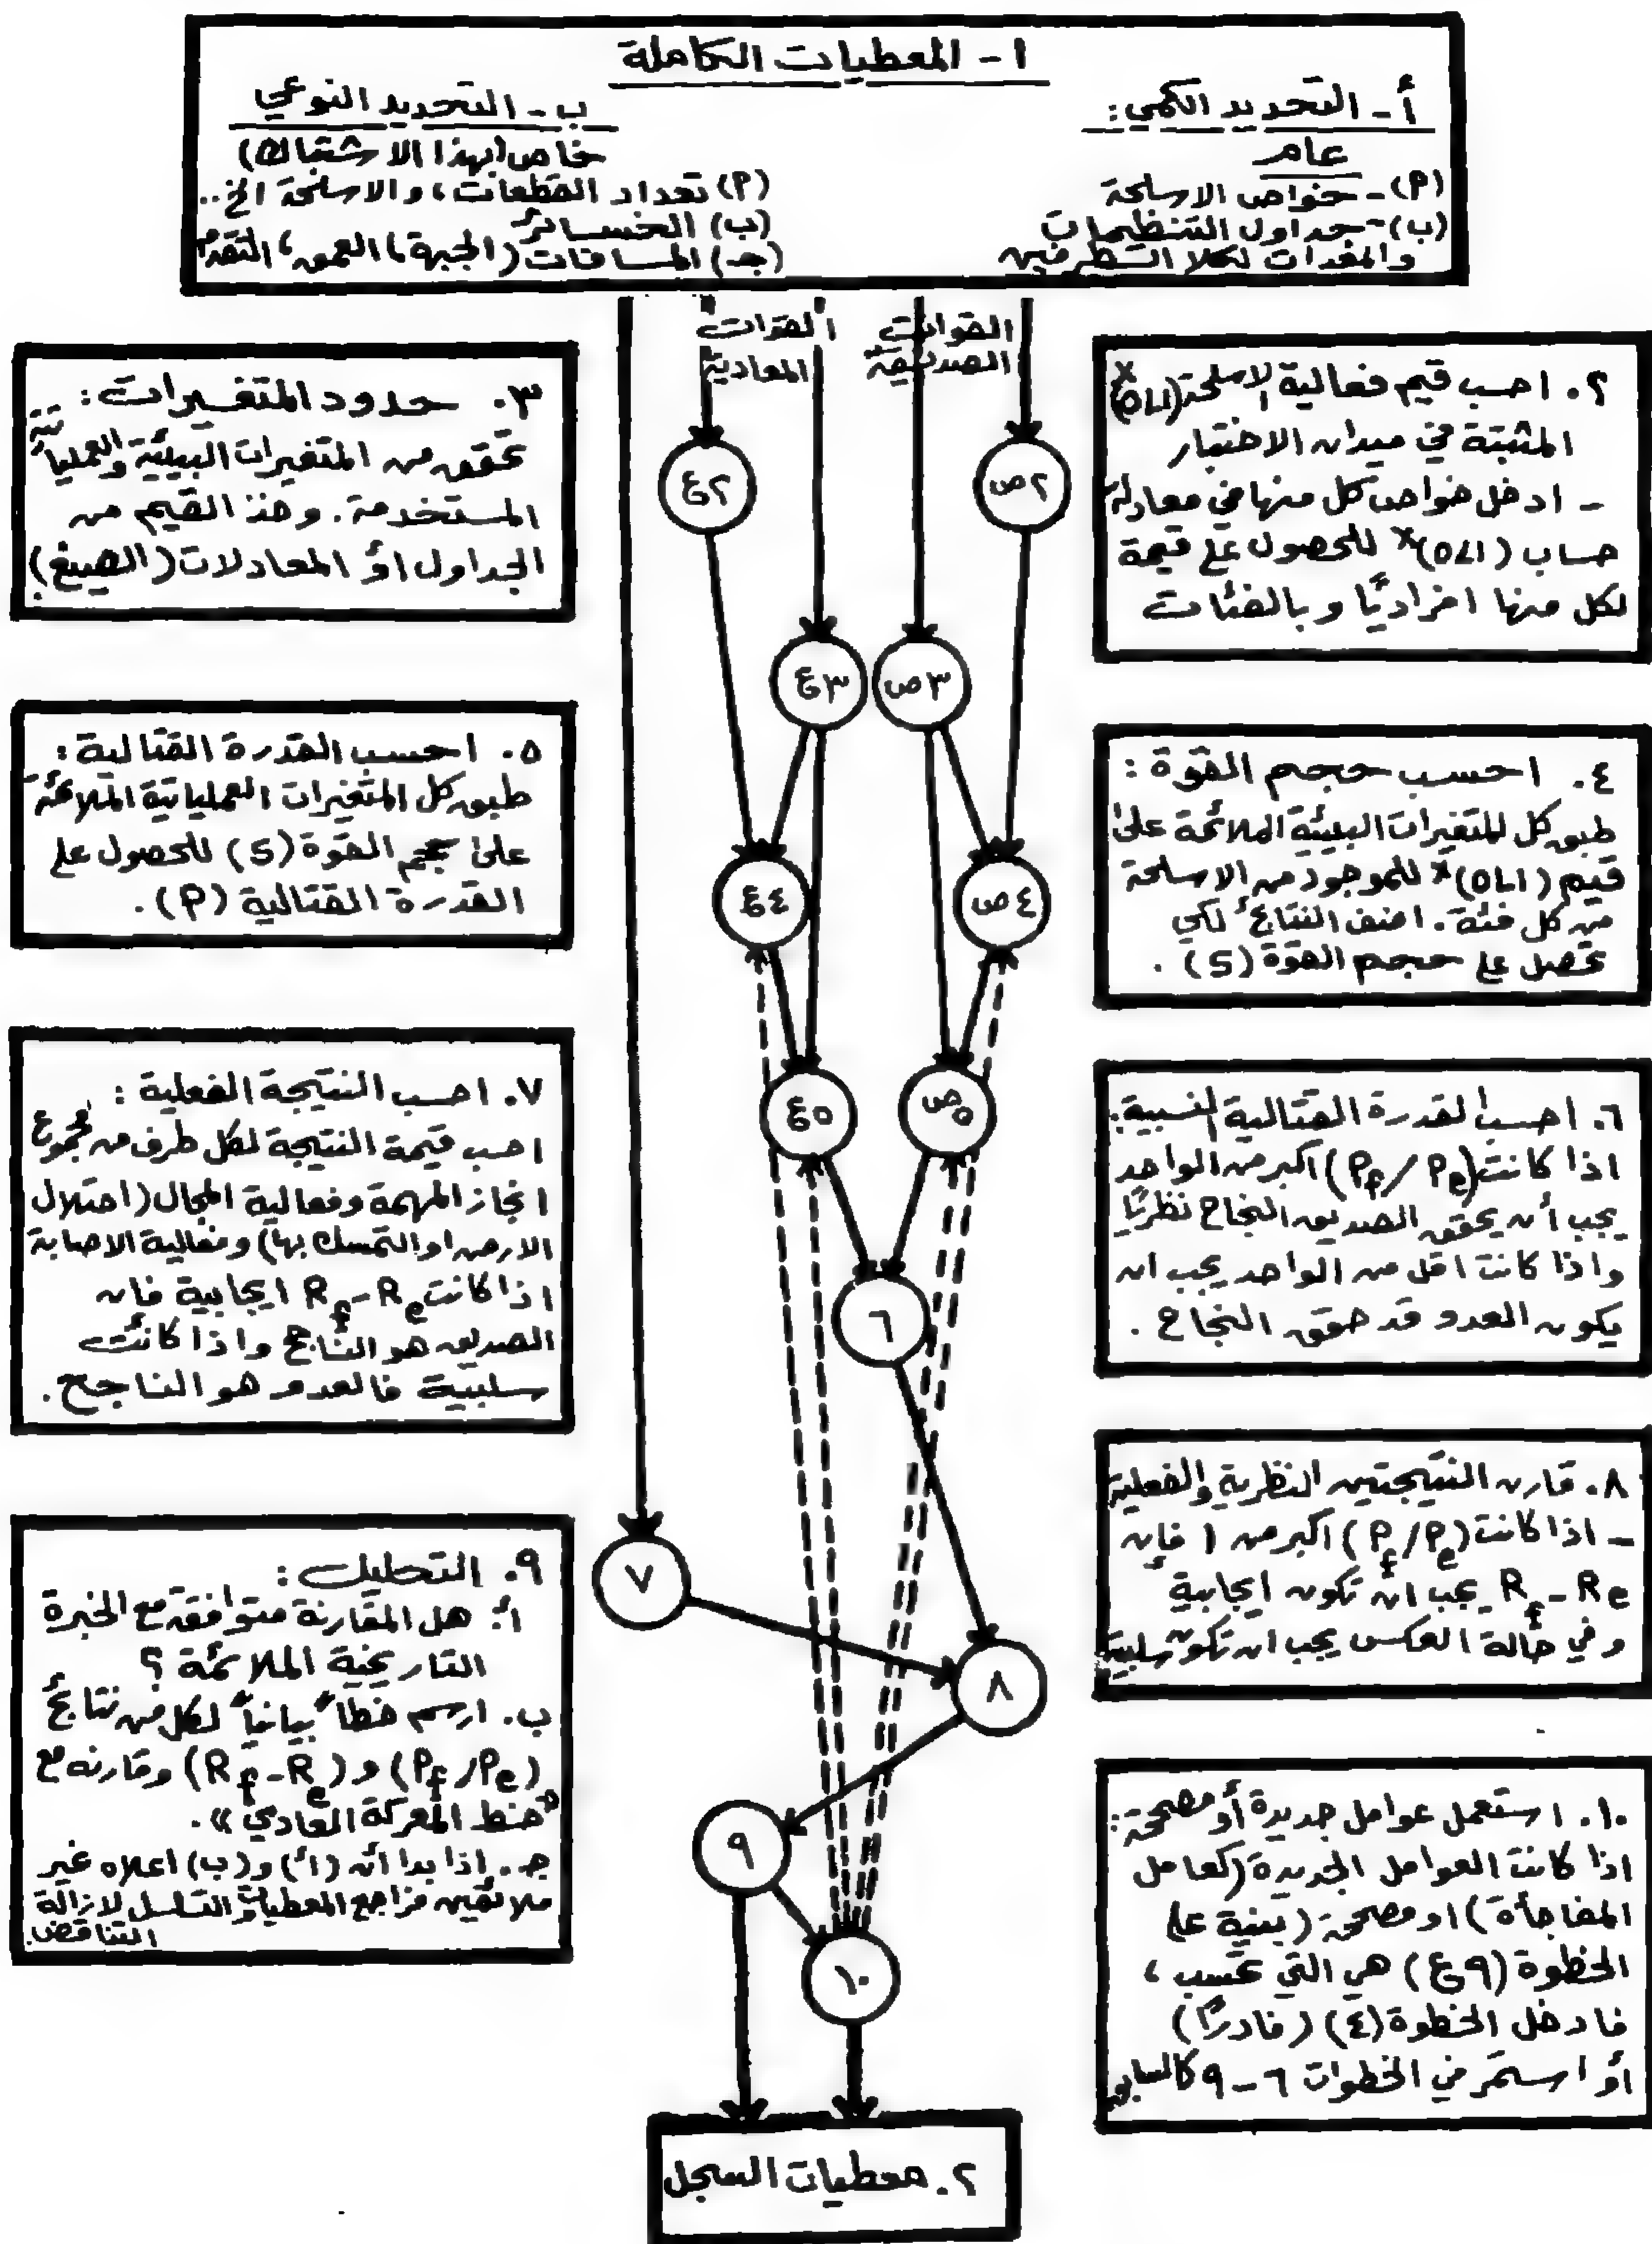 ١ - المعطيات الكاملة
أ - التحديد الكمي:
عام
(P) - خواص الاسلحة
(ب) - جداول التنظيمات
والمعدات لكلا الطرفين
ب - التحديد النوعي
خاص (بهذا الاشتباك)
(P) تعداد القطعات، والاسلحة الخ..
(ب) الخسائر
(جـ) المسافات (الجبهة، العمق، التقدم
القوات
المعادية
القوات
الصديقة
٢. احسب قيم فعالية الاسلحة (OLI)×
المثبتة في ميدان الاختبار
- ادخل خواص كل منها في معادلة
حساب (OLI)× للحصول على قيمة
لكل منها افراديًا وبالفئات
٣. حدود المتغيرات:
تحقق من المتغيرات البيئية والعملياتية
المستخدمة. وخذ القيم من
الجداول أو المعادلات (الصيغ)
٤. احسب حجم القوة:
طبق كل المتغيرات البيئية الملائمة على
قيم (OLI)× للموجود من الاسلحة
من كل فئة. اضف النتائج لكي
تحصل على حجم القوة (S).
٥. احسب القدرة القتالية:
طبق كل المتغيرات العملياتية الملائمة
على حجم القوة (S) للحصول على
القدرة القتالية (P).
٦. احسب القدرة القتالية النسبية:
اذا كانت (Pf/Pe) اكبر من الواحد
يجب أن يحقق الصديق النجاح نظريًا
واذا كانت اقل من الواحد يجب ان
يكون العدو قد حقق النجاح.
٧. احسب النتيجة الفعلية:
احسب قيمة النتيجة لكل طرف من مجموع
انجاز المهمة وفعالية المجال (احتلال
الارض او التمسك بها) وفعالية الاصابة
اذا كانت Rf-Re ايجابية فان
الصديق هو الناجح واذا كانت
سلبية فالعدو هو الناجح.
٨. قارن النتيجتين النظرية والفعلية
- اذا كانت (Pf/Pe) اكبر من ١ فإن
Rf-Re يجب ان تكون ايجابية
وفي حالة العكس يجب ان تكون سلبية
٩. التحليل:
أ. هل المقارنة متوافقة مع الخبرة
التاريخية الملائمة؟
ب. ارسم خطاً بيانياً لكل من نتائج
(Pf/Pe) و (Rf-Re) وقارنه مع
«خط المعركة العادي».
جـ. إذا بدا أن (أ) و(ب) اعلاه غير
ملائمين فراجع المعطيات والتسلسل لازالة
التناقض.
١٠. استعمل عوامل جديدة أو مصححة:
اذا كانت العوامل الجديدة (كعامل
المفاجأة) او مصححة (بنية على
الخطوة (٩ع) هي التي تحسب،
فادخل الخطوة (٤) (نادرًا)
أو استمر في الخطوات ٦-٩ كالسابق
٢ع
٢ص
٣ع
٣ص
٤ع
٤ص
٥ع
٥ص
٦
٧
٨
٩
١٠
٢. معطيات السجل